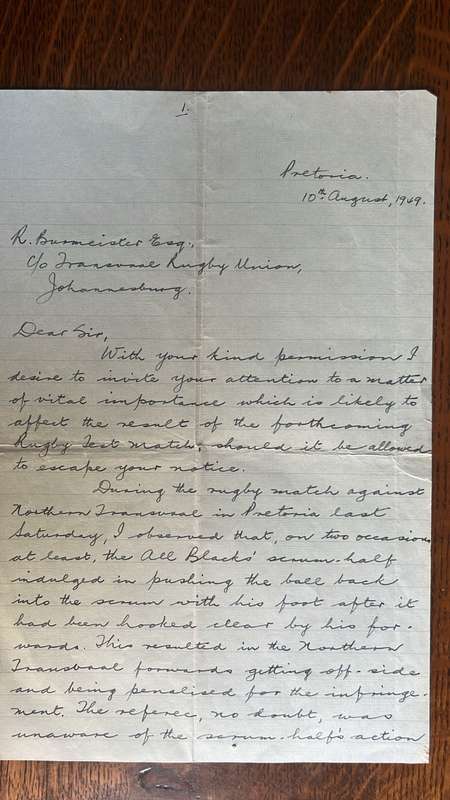 1.
Pretoria.
10th August, 1949.
R. Burmeister Esq.,
c/o Transvaal Rugby Union,
Johannesburg.
Dear Sir,
With your kind permission I
desire to invite your attention to a matter
of vital importance which is likely to
affect the result of the forthcoming
Rugby Test Match, should it be allowed
to escape your notice.
During the rugby match against
Northern Transvaal in Pretoria last
Saturday, I observed that, on two occasions
at least, the All Blacks' scrum-half
indulged in pushing the ball back
into the scrum with his foot after it
had been hooked clear by his for-
wards. This resulted in the Northern
Transvaal forwards getting off-side
and being penalised for the infringe-
ment. The referee, no doubt, was
unaware of the scrum-half's action